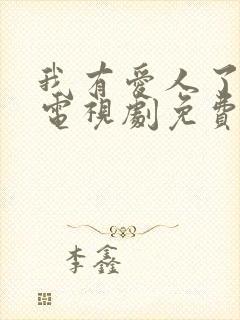 我有爱人了
電視劇免費
李鑫